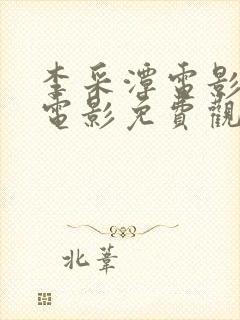 李采潭電影
電影免費觀
北葦